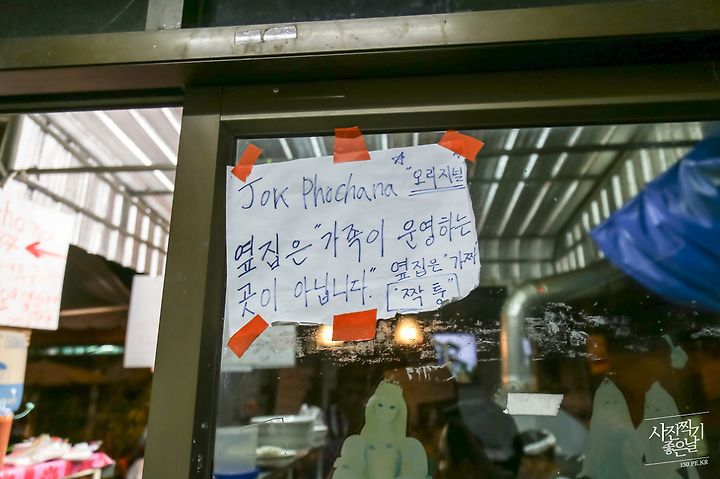 Jok Phochana "오리지널"
옆집은 "가족이 운영하는
곳이 아닙니다." 옆집은 "가짜"
["짝퉁"]
사진찍기
좋은날
130.PE.KR